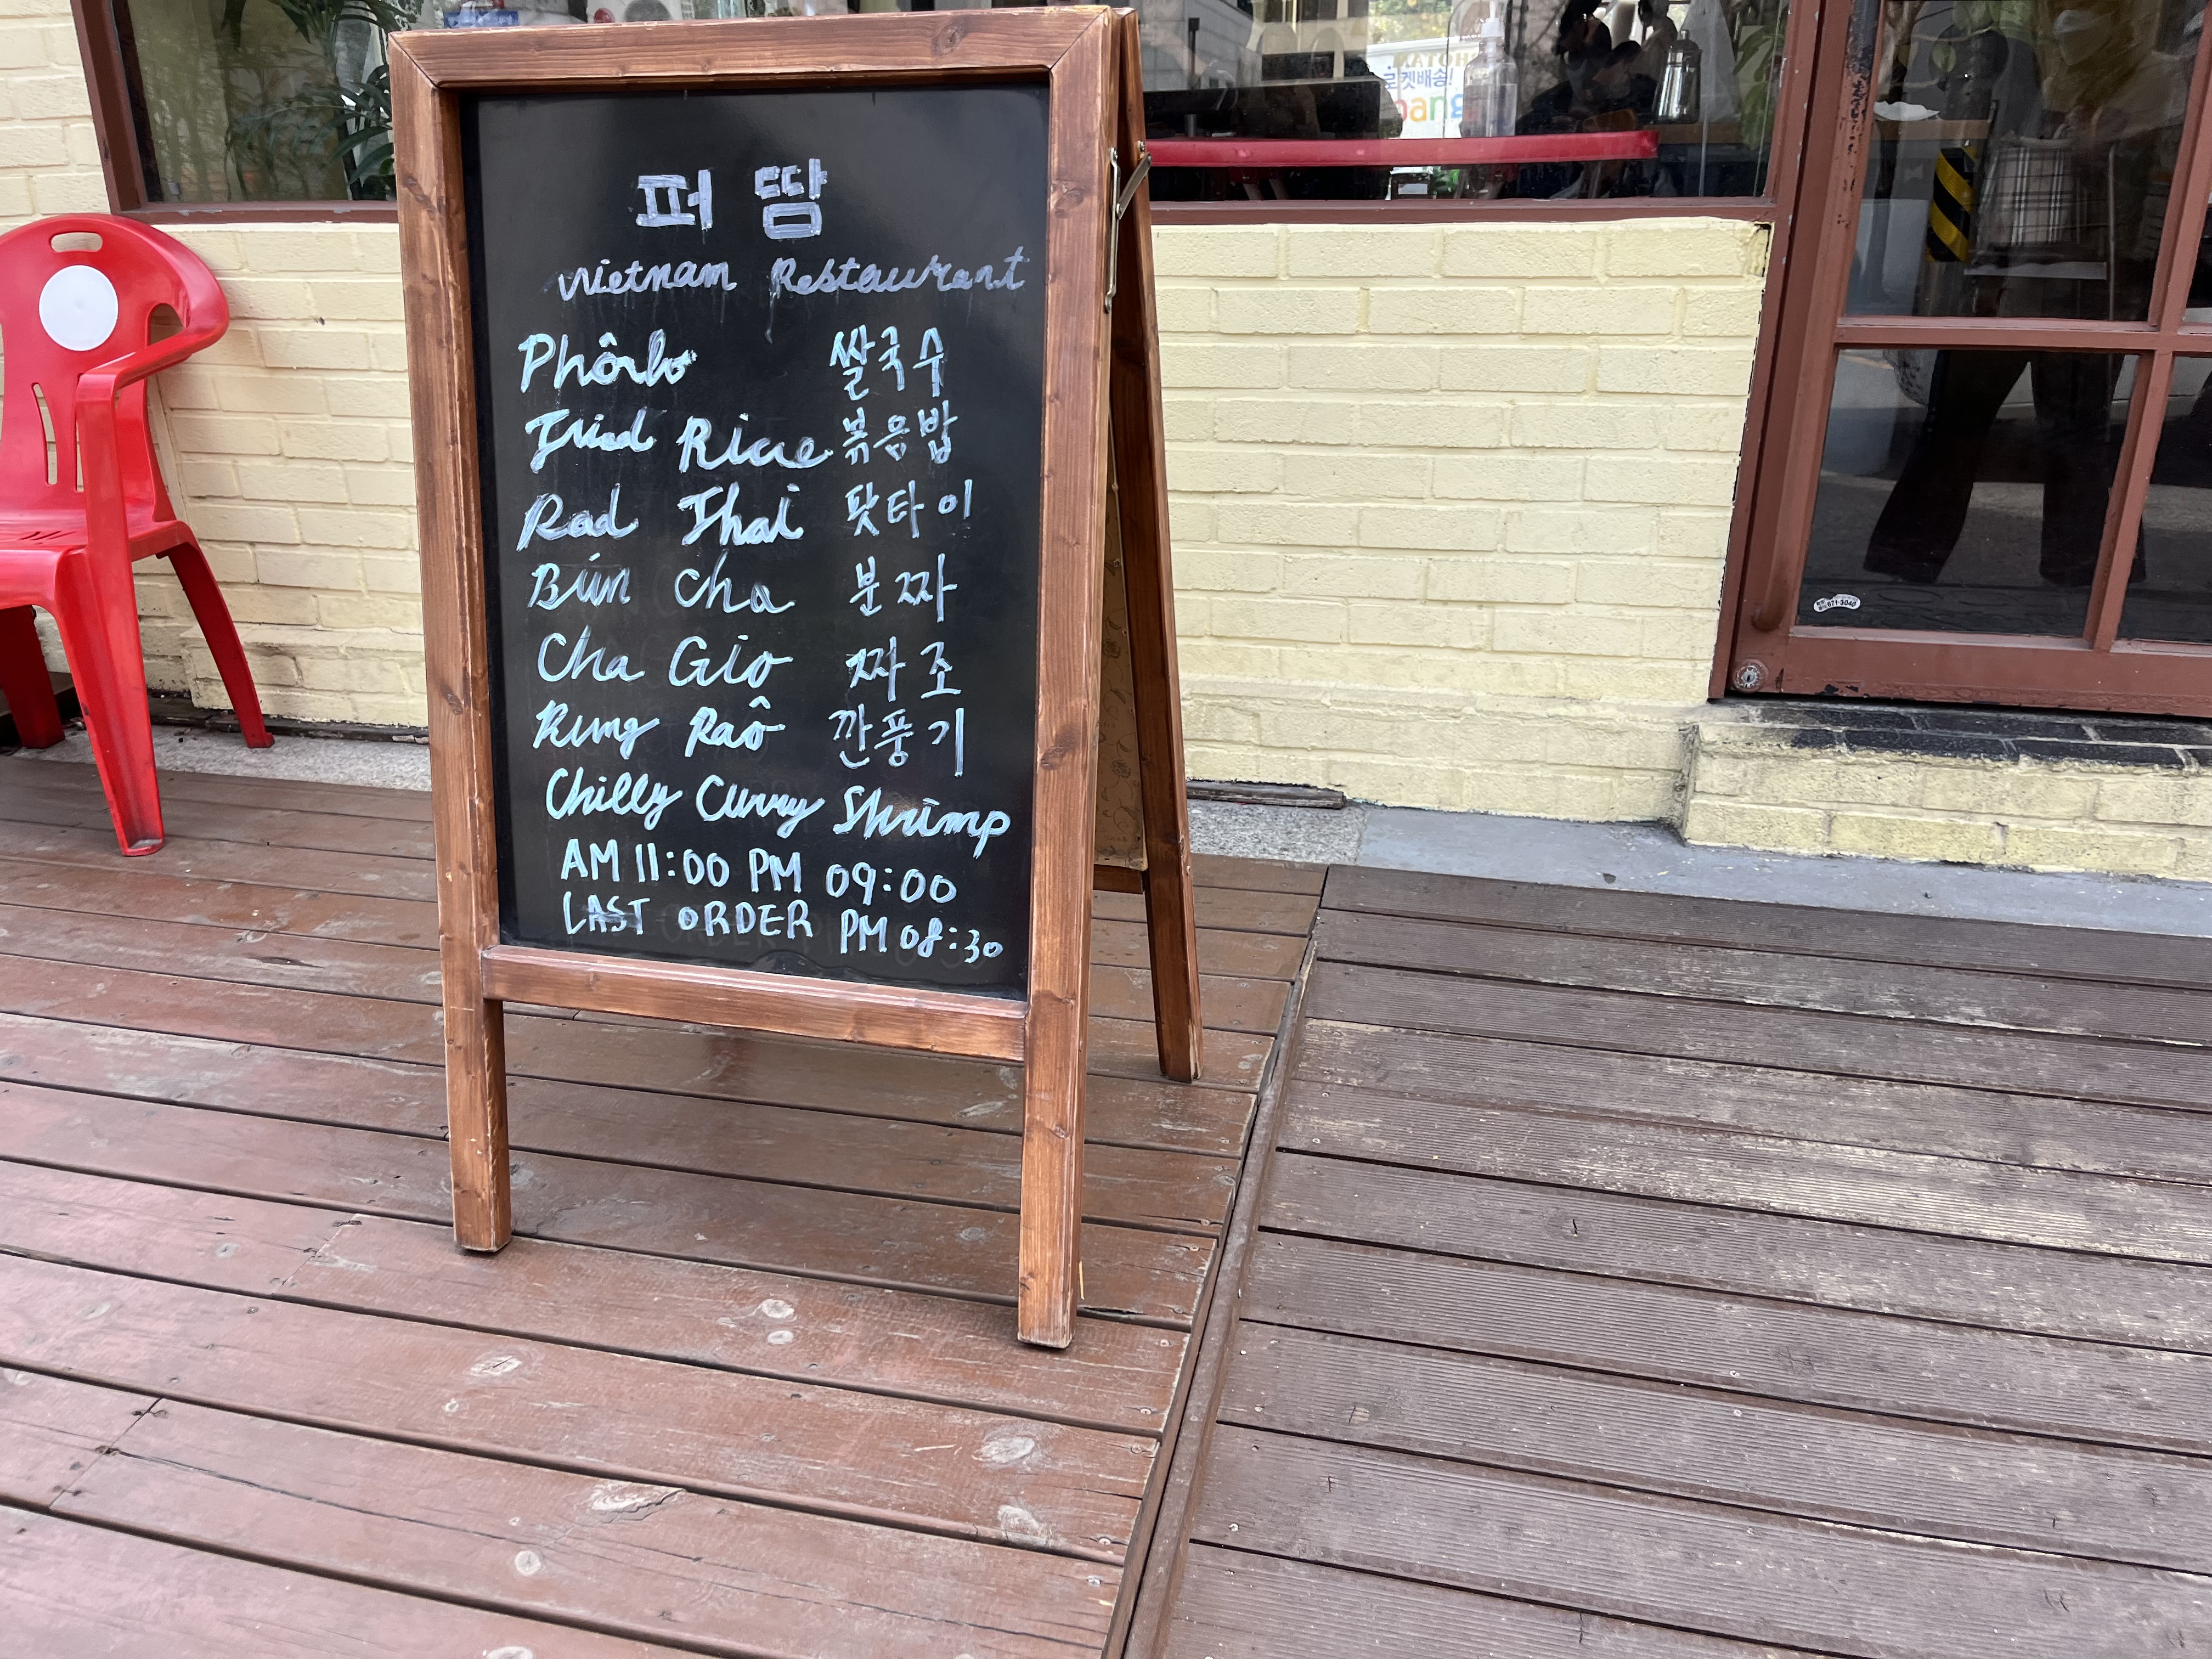 퍼 땀
Vietnam Restaurant
Phôrbo 쌀국수
Fried Rice 볶음밥
Rad Thai 팟타이
Bún Cha 분짜
Cha Gio 짜조
Rung Raô 깐풍기
Chilly Curry Shrimp
AM 11:00 PM 09:00
LAST ORDER PM 08:30
로켓배송!